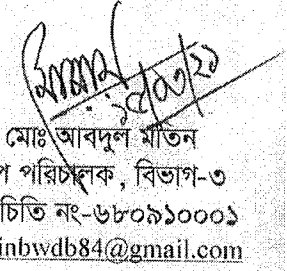 ১৫/০৩/২১
মোঃ আবদুল মতিন
প পরিচালক, বিভাগ-৩
চিতি নং-৬৮০৯১০০০১
inbwdb84@gmail.com